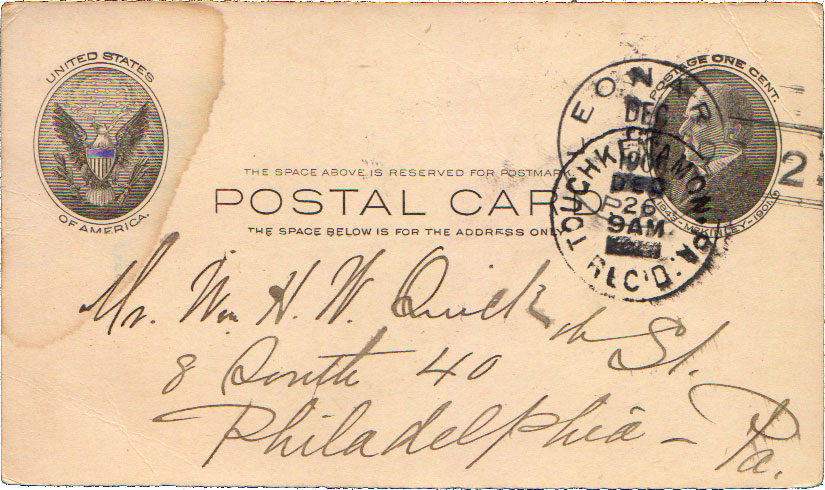 UNITED STATES
OF AMERICA.
POSTAGE ONE CENT.
1843-McKINLEY-1901
THE SPACE ABOVE IS RESERVED FOR POSTMARK.
POSTAL CARD
THE SPACE BELOW IS FOR THE ADDRESS ONLY
DEC
DEC
26
9AM
REC'D.
2
Mr. Wm H. W. Quick
8 South 40 th St.
Philadelphia - Pa.